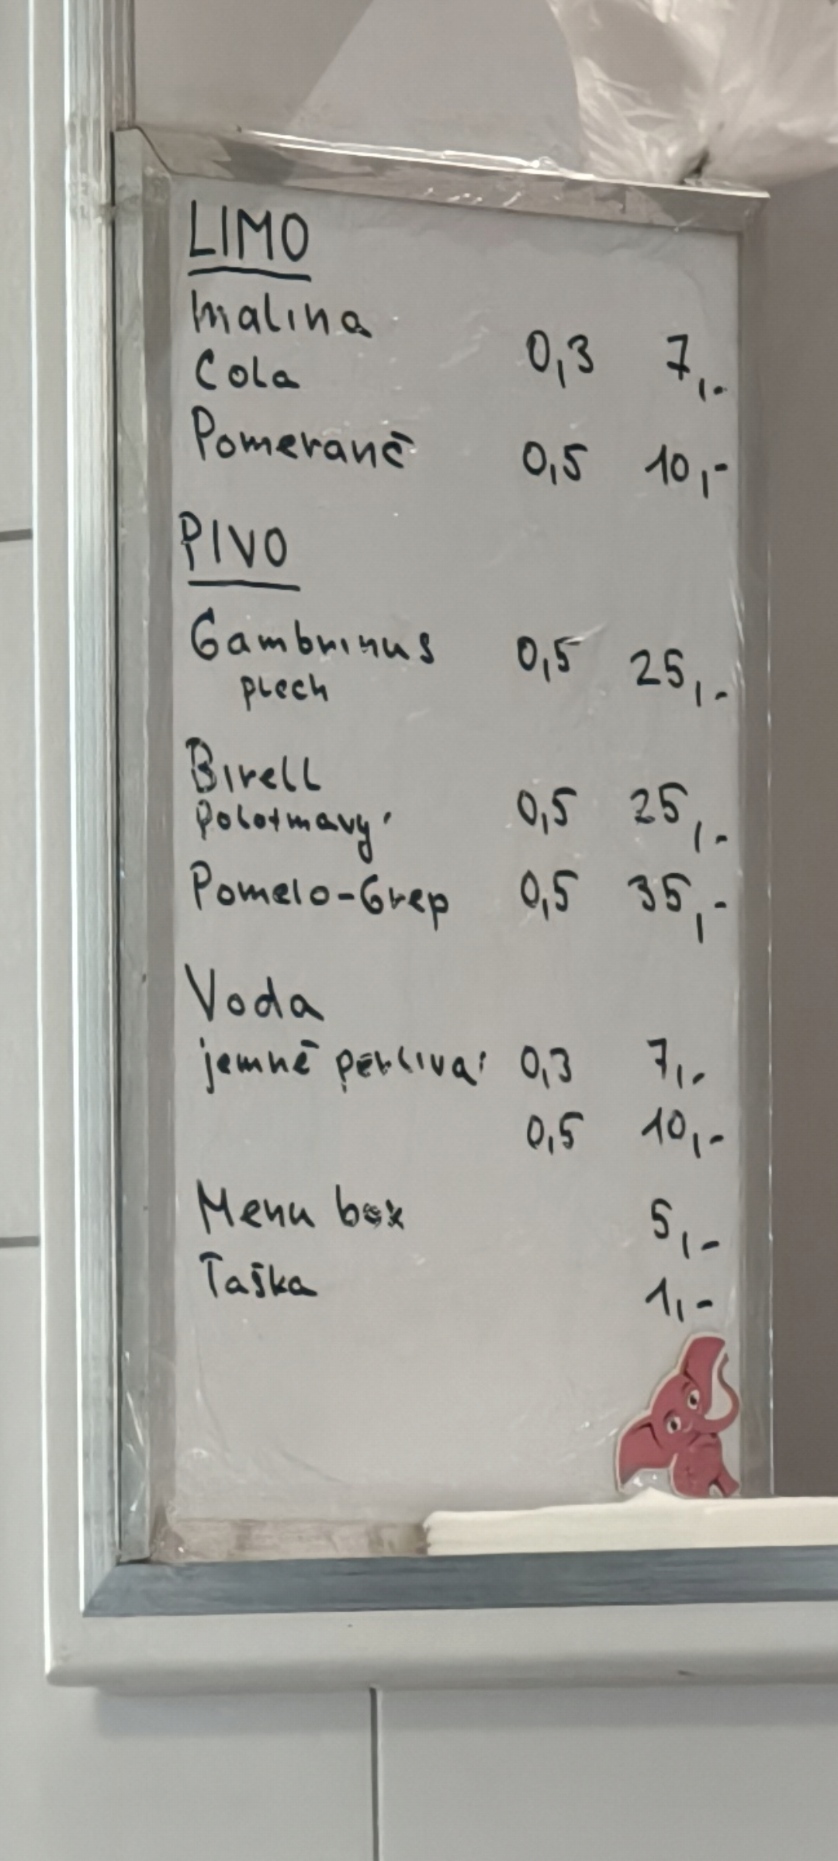 LIMO
Malina
Cola 0,3 7,-
Pomeranč 0,5 10,-
PIVO
Gambrinus 0,5 25,-
plech
Birell
Polotmavý 0,5 25,-
Pomelo-Grep 0,5 35,-
Voda
jemně perlivá 0,3 7,-
0,5 10,-
Menu box 5,-
Taška 1,-